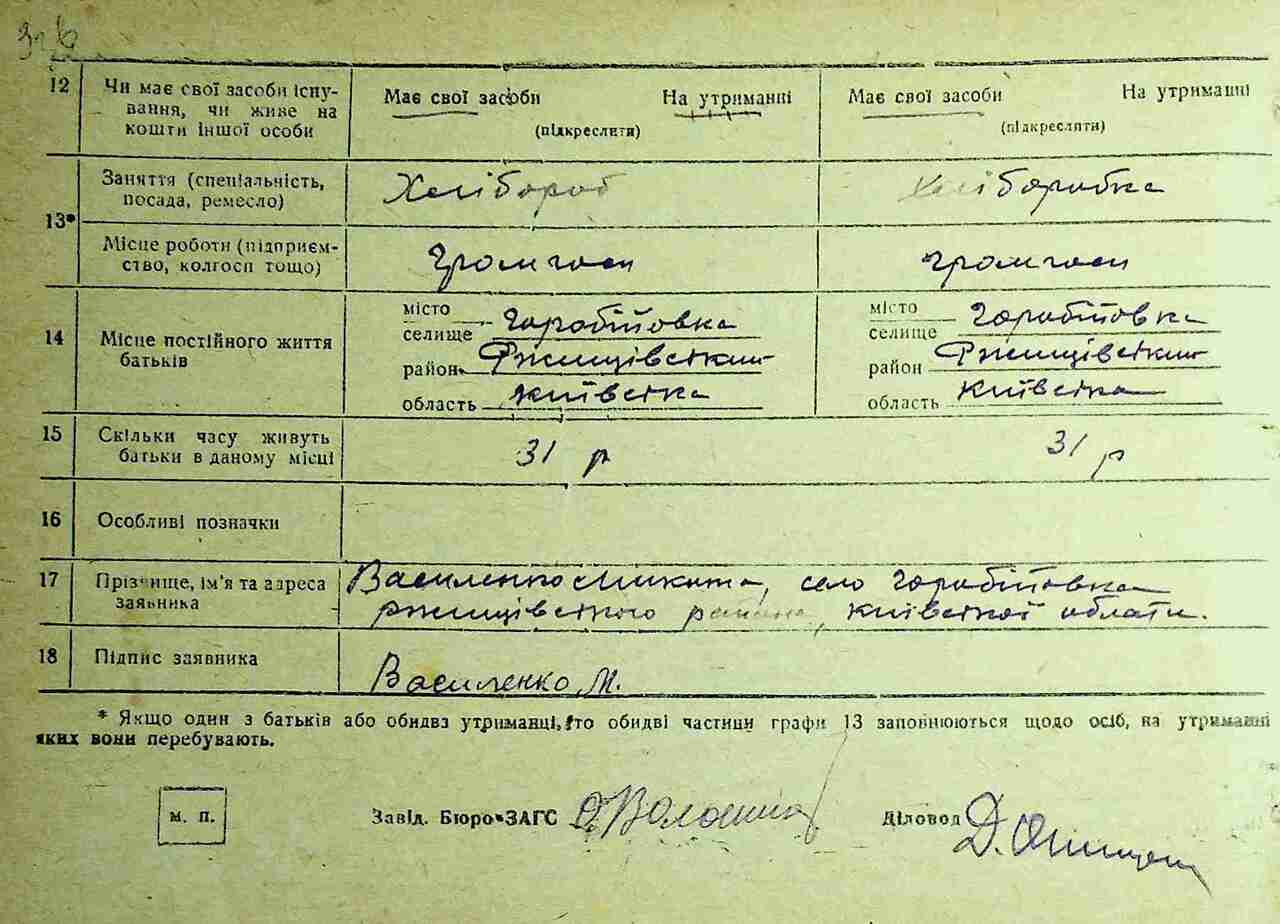 12 Чи має свої засоби існу-
вання, чи живе на
кошти іншої особи
Має свої засоби На утриманні
(підкреслити)
Має свої засоби На утриманні
(підкреслити)
13*
Заняття (спеціальність,
посада, ремесло)
Хлібороб
Хліборобка
Місце роботи (підприєм-
ство, колгосп тощо)
громгосп
громгосп
14 Місце постійного життя
батьків
місто
селище Горобіївка
район Ржищівський
область Київська
місто
селище Горобіївка
район Ржищівський
область Київська
15 Скільки часу живуть
батьки в даному місці
31 р
31 р
16 Особливі позначки
17 Прізвище, ім'я та адреса
заявника
Василенко Микита, село Горобіївка
Ржищівського района, Київської облати.
18 Підпис заявника
Василенко М.
* Якщо один з батьків або обидва утриманці, то обидві частини графи 13 заповнюються щодо осіб, на утриманні
яких вони перебувають.
М. П.
Завід. Бюро ЗАГС
Діловод Д.